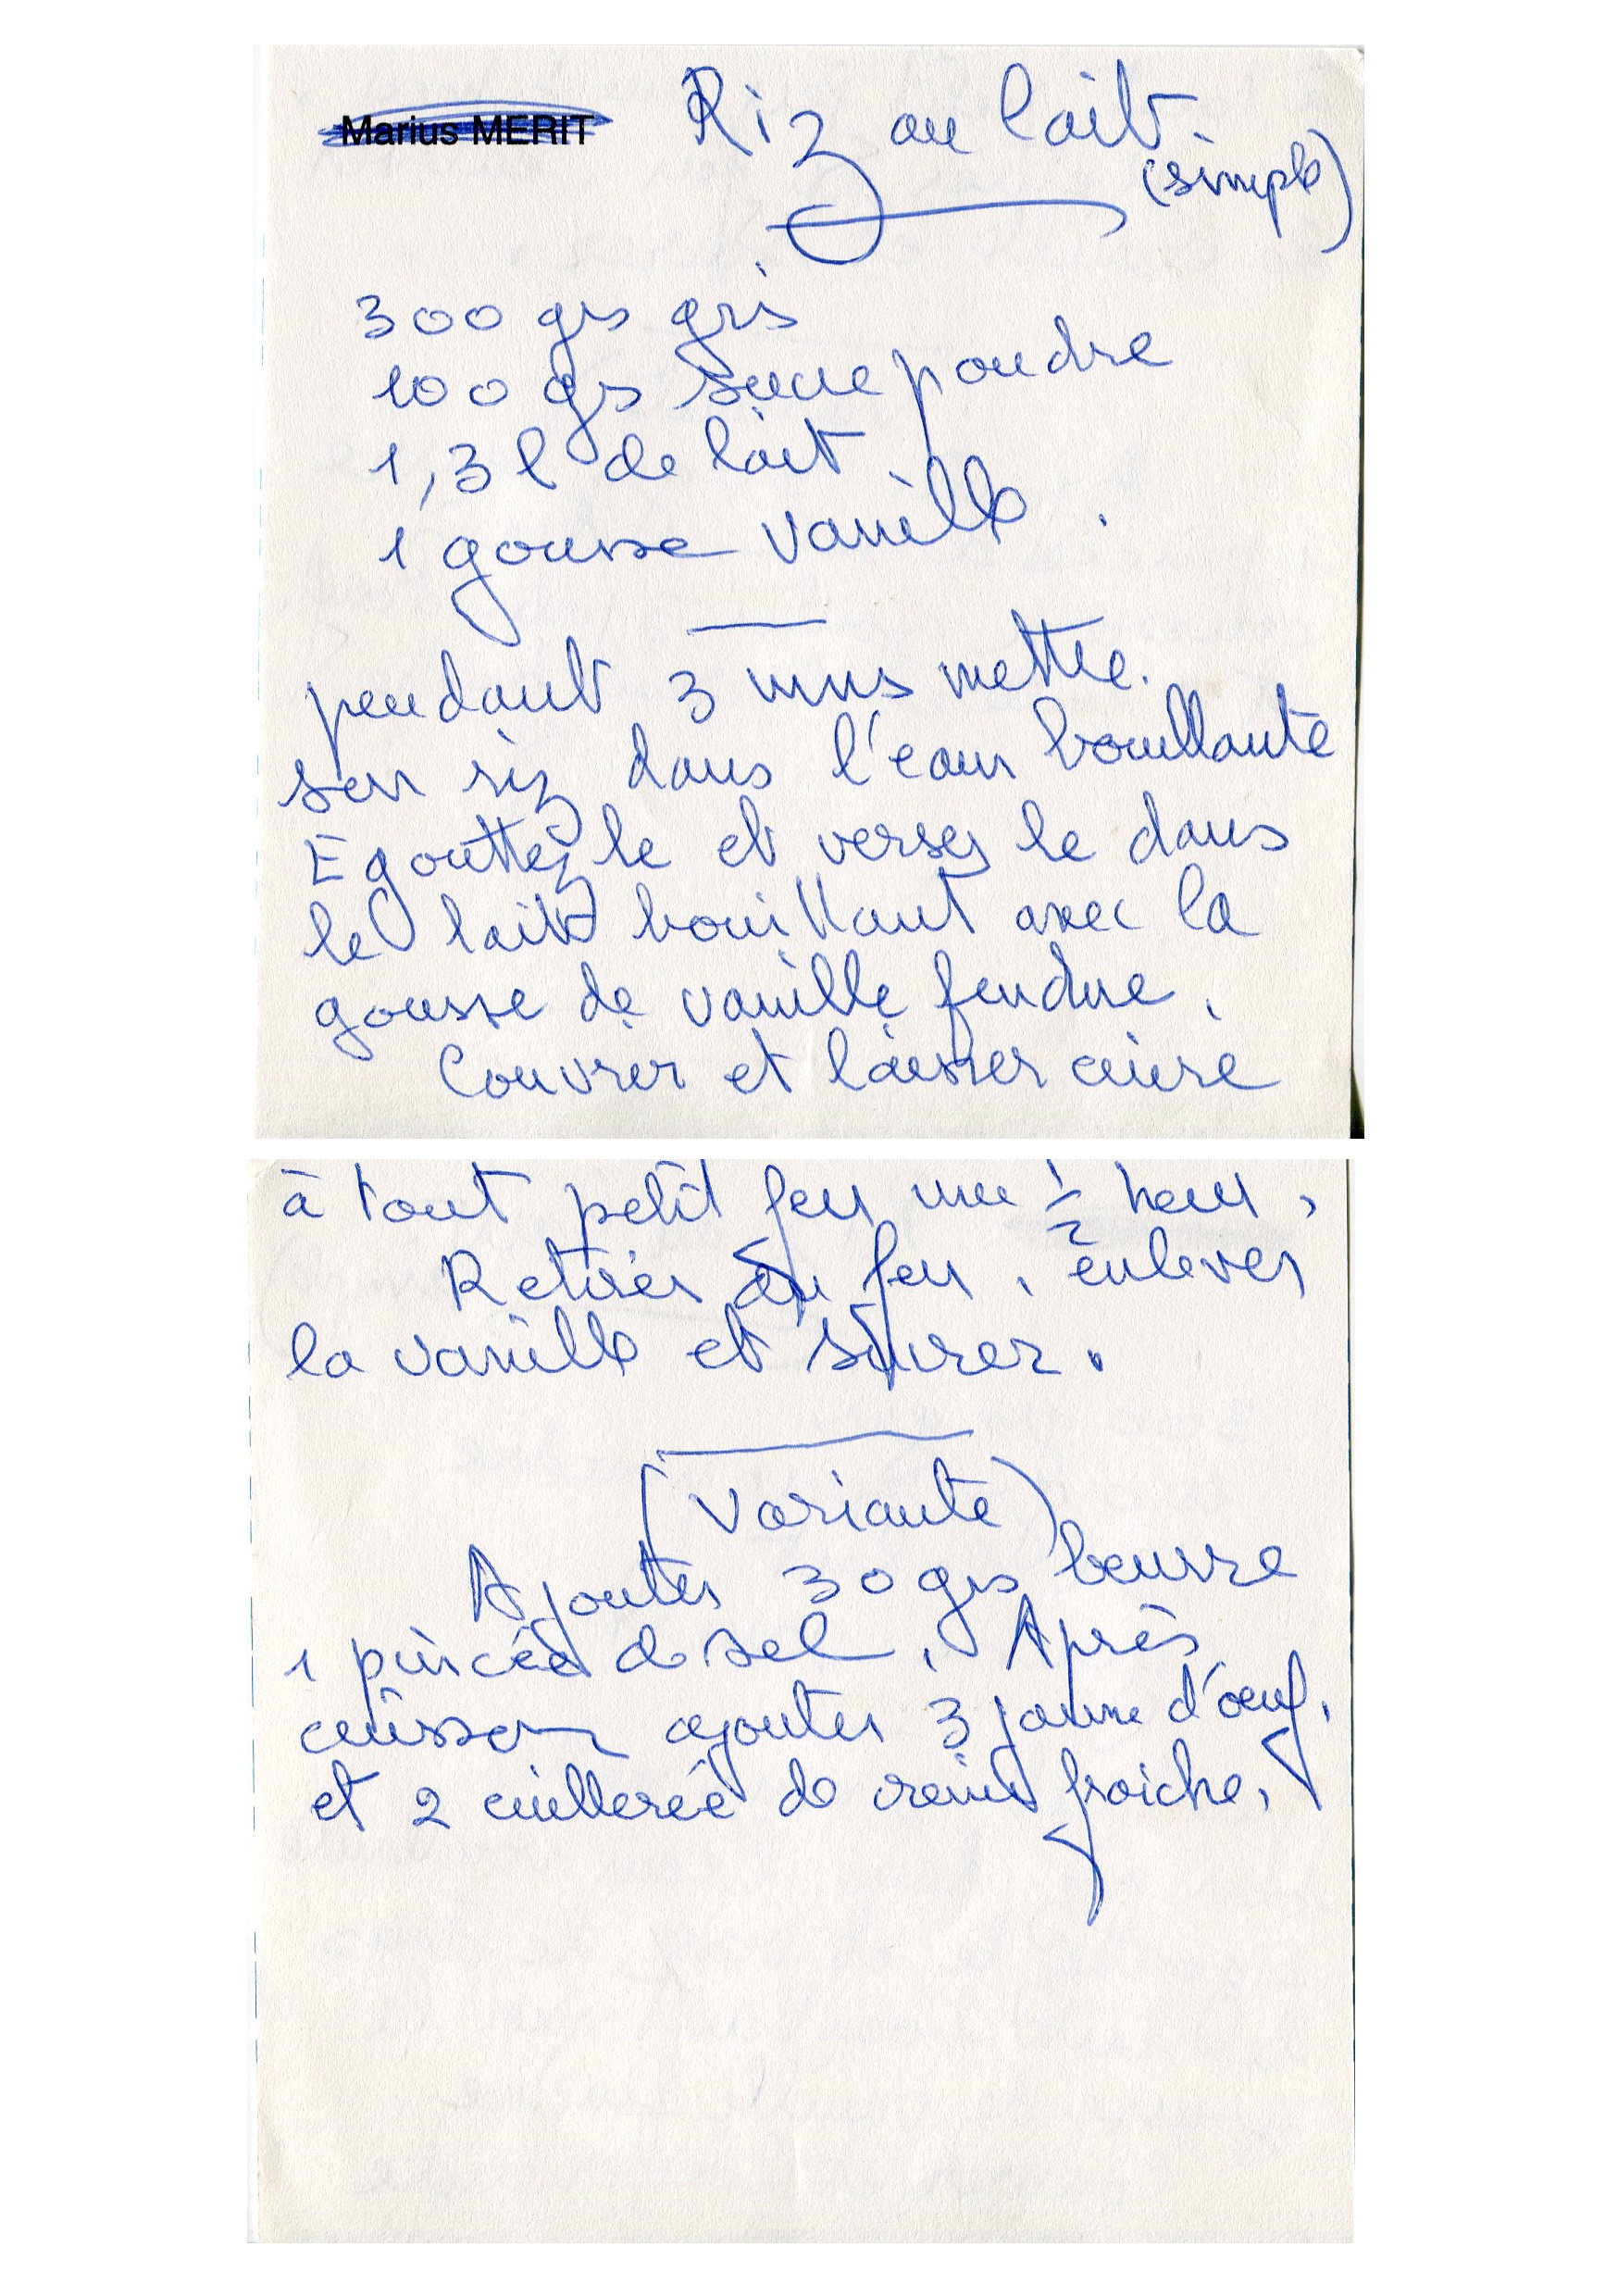 Marius MERIT
Riz au lait
(simple)
300 grs gris
100 grs sucre poudre
1,3 l de lait
1 gousse vanille.
pendant 3 mns mettre
son riz dans l'eau bouillante
Egouttez le et versez le dans
le lait bouillant avec la
gousse de vanille fendue.
Couvrer et laisser cuire
à tout petit feu une 1/2 heur,
Retirer du feu, enlever
la vanille et sucrer.
(Variante)
Ajouter 30 grs beurre
1 pincée de sel. Après
cuisson ajouter 3 jaune d'oeuf.
et 2 cuillerée de creme fraiche.